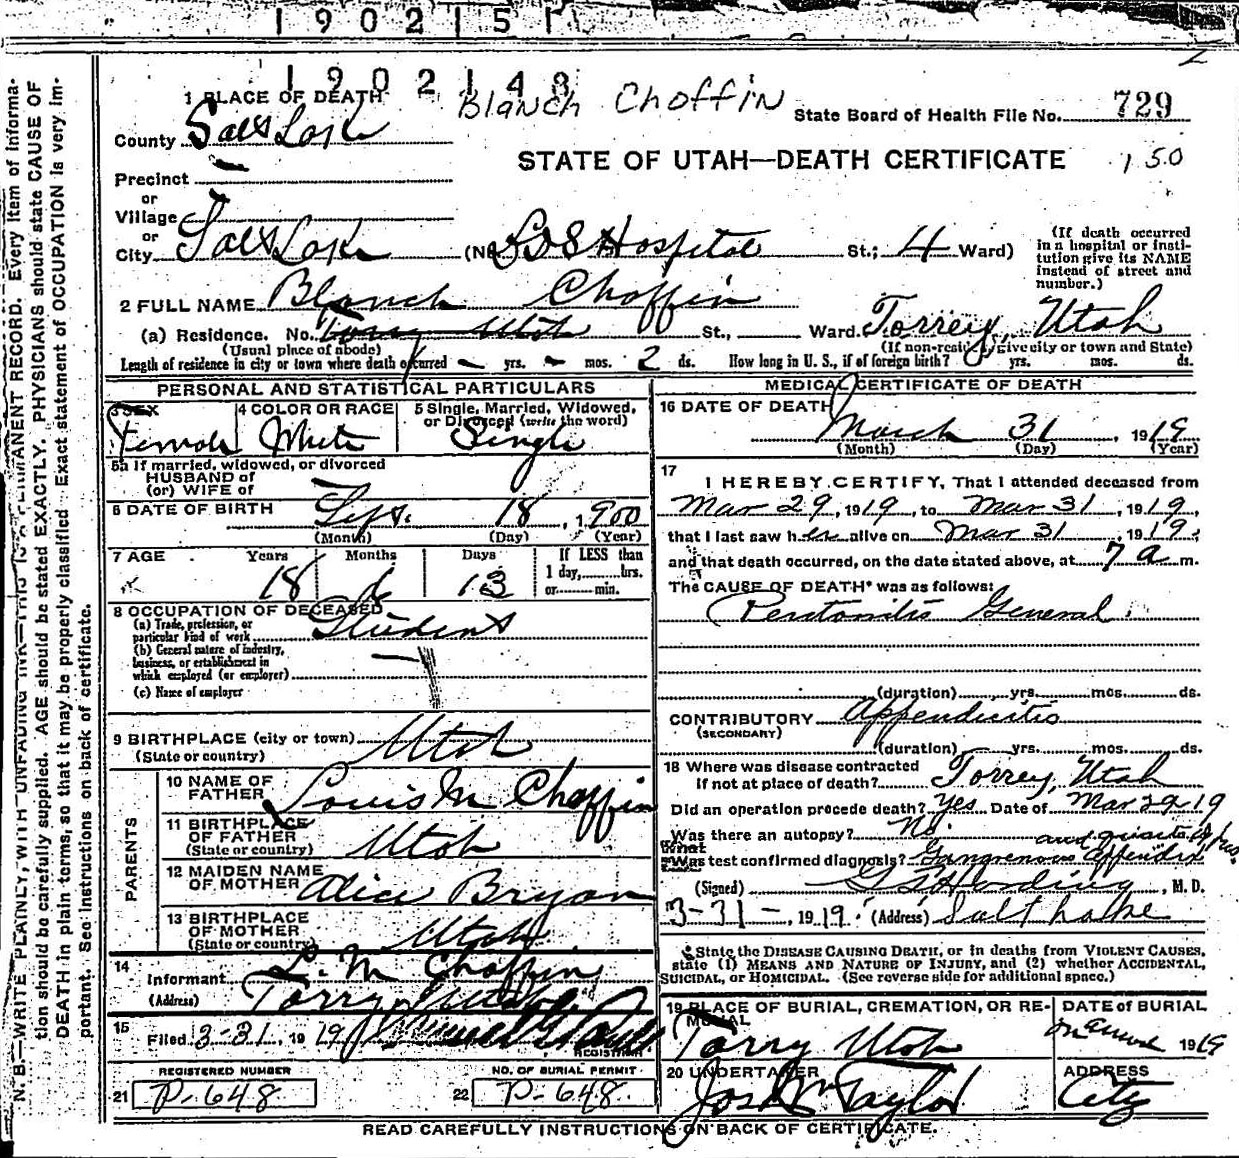 1902151
1902148
Blanch Choffin
1 PLACE OF DEATH
State Board of Health File No. 729
County Salt Lake
STATE OF UTAH—DEATH CERTIFICATE
150
Precinct
or
Village
or
City Salt Lake (No. LDS Hospital St.; 4 Ward)
(If death occurred in a hospital or insti-
tution give its NAME
instead of street and
number.)
2 FULL NAME Blanch Choffin
(a) Residence. No. Torrey Utah St., Ward. Torrey, Utah
(Usual place of abode) (If non-resident, give city or town and State)
Length of residence in city or town where death occurred — yrs. — mos. 2 ds. How long in U. S., if of foreign birth? yrs. mos. ds.
PERSONAL AND STATISTICAL PARTICULARS
3 SEX Female
4 COLOR OR RACE White
5 Single, Married, Widowed,
or Divorced (write the word)
Single
5a If married, widowed, or divorced
HUSBAND of
(or) WIFE of
6 DATE OF BIRTH Sept. 18, 1900
(Month) (Day) (Year)
7 AGE Years Months Days If LESS than
18 6 13 1 day, hrs.
or min.
8 OCCUPATION OF DECEASED
(a) Trade, profession, or
particular kind of work Student
(b) General nature of industry,
business, or establishment in
which employed (or employer)
(c) Name of employer
9 BIRTHPLACE (city or town) Utah
(State or country)
PARENTS
10 NAME OF
FATHER Louis M Choffin
11 BIRTHPLACE
OF FATHER Utah
(State or country)
12 MAIDEN NAME
OF MOTHER Alice Bryan
13 BIRTHPLACE
OF MOTHER Utah
(State or country)
14 Informant L. M. Choffin
(Address) Torry Utah
15 Filed 3-31 1919
REGISTRAR
REGISTERED NUMBER NO. OF BURIAL PERMIT
21 P-648 22 P-648
MEDICAL CERTIFICATE OF DEATH
16 DATE OF DEATH
March 31, 1919
(Month) (Day) (Year)
17
I HEREBY CERTIFY, That I attended deceased from
Mar 29, 1919, to Mar 31, 1919,
that I last saw her alive on Mar 31, 1919,
and that death occurred, on the date stated above, at 7 a m.
The CAUSE OF DEATH* was as follows:
Peritonitis General
(duration) yrs. mos. ds.
CONTRIBUTORY Appendicitis
(SECONDARY)
(duration) yrs. mos. ds.
18 Where was disease contracted
if not at place of death? Torrey, Utah
Did an operation precede death? Yes Date of Mar 29 19
Was there an autopsy? No.
What test confirmed diagnosis? Gangrenous Appendix and
(Signed) G S Harding, M. D.
3-31-, 1919. (Address) Salt Lake
*State the DISEASE CAUSING DEATH, or in deaths from VIOLENT CAUSES,
state (1) MEANS AND NATURE OF INJURY, and (2) whether ACCIDENTAL,
SUICIDAL, or HOMICIDAL. (See reverse side for additional space.)
19 PLACE OF BURIAL, CREMATION, OR RE-
MOVAL
Torry Utah
DATE OF BURIAL
1919
20 UNDERTAKER
Jos Wm Taylor
ADDRESS
City
READ CAREFULLY INSTRUCTIONS ON BACK OF CERTIFICATE.
N. B.—WRITE PLAINLY, WITH UNFADING INK—THIS IS A PERMANENT RECORD. Every item of informa-
tion should be carefully supplied. AGE should be stated EXACTLY. PHYSICIANS should state CAUSE OF
DEATH in plain terms, so that it may be properly classified. Exact statement of OCCUPATION is very im-
portant. See instructions on back of certificate.